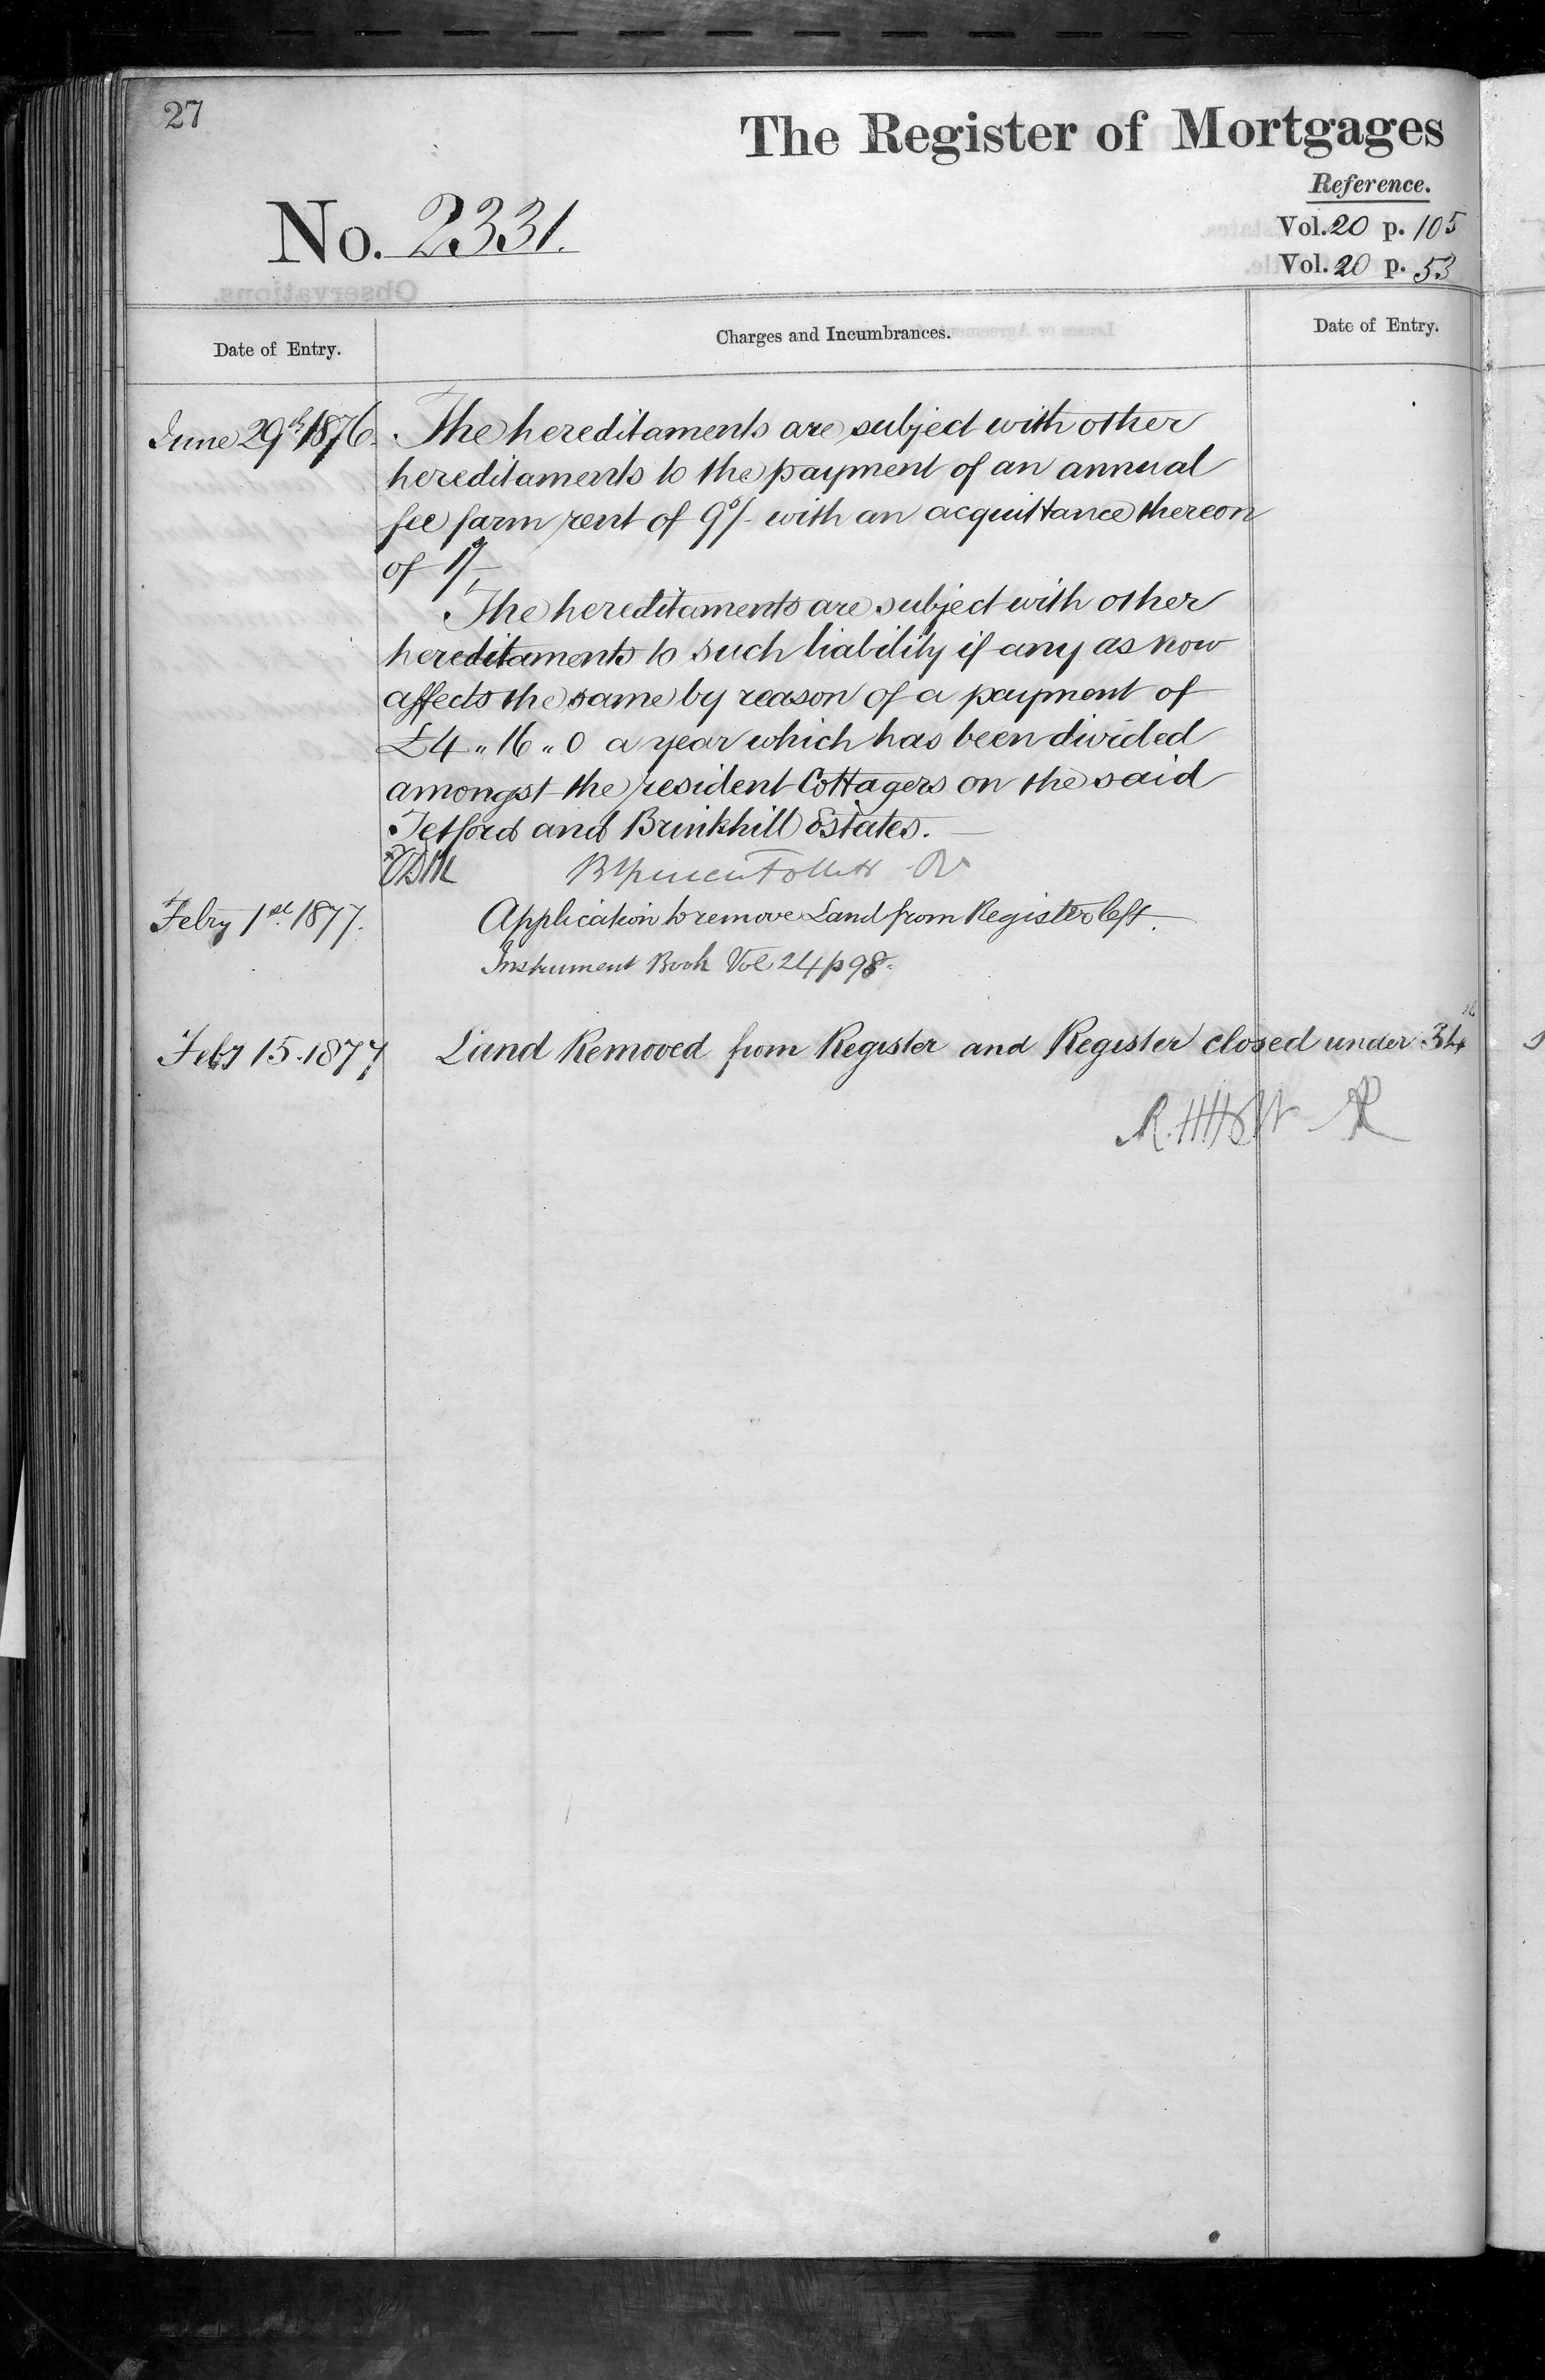 27
The Register of Mortgages
Reference.
No. 2331.
Vol. 20 p. 105
Vol. 20 p. 53
Date of Entry.
Charges and Incumbrances.
Date of Entry.
June 29th 1876. The hereditaments are subject with other
hereditaments to the payment of an annual
fee farm rent of 9s/- with an acquittance thereon
of 1/-
The hereditaments are subject with other
hereditaments to such liability if any as now
affects the same by reason of a payment of
£4 „ 16 „ 0 a year which has been divided
amongst the resident Cottagers on the said
Tetford and Brinkhill Estates.
Febry 1st 1877. Application to remove Land from Register left.
Instrument Book Vol 24 p 98.
Feby 15. 1877 Land Removed from Register and Register closed under 34
R. H Holt